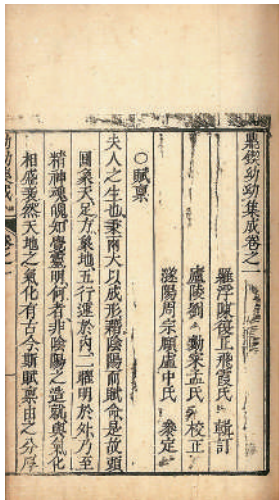 鼎鍥幼幼集成卷之一
羅浮陳復正飛霞氏 輯訂
廬陵劉 勷宷孟氏 校正
遂陽周宗頤盧中氏 參定
○賦稟
夫人之生也秉兩大以成形藉陰陽而賦命是故頭
圓象天足方象地五行運於內二曜明於外乃至
精神魂魄知覺靈明何者非陰陽之造就與氣化
相盛衰然天地之氣化有古今斯賦稟由之分厚
幼幼集成 卷之一